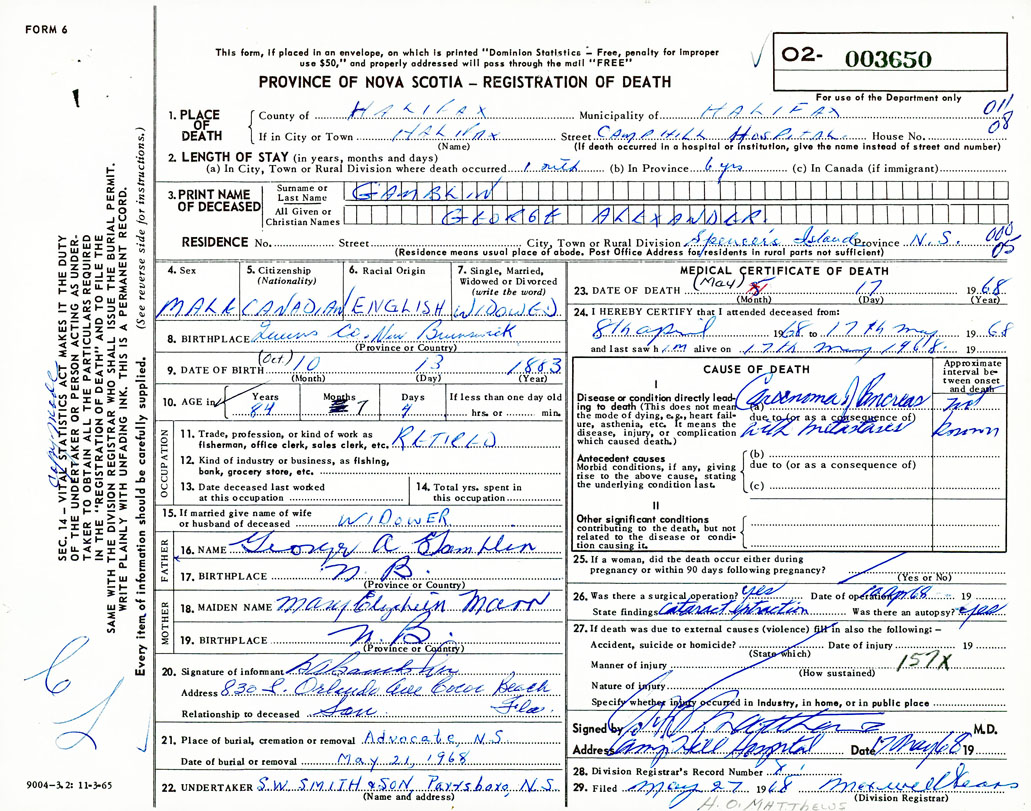 FORM 6
This form, if placed in an envelope, on which is printed "Dominion Statistics – Free, penalty for improper
use $50," and properly addressed will pass through the mail "FREE"
PROVINCE OF NOVA SCOTIA – REGISTRATION OF DEATH
O2- 003650
For use of the Department only
011
08
1. PLACE OF DEATH
County of HALIFAX Municipality of HALIFAX
If in City or Town HALIFAX Street CAMP HILL HOSPITAL House No.
(Name) (If death occurred in a hospital or institution, give the name instead of street and number)
2. LENGTH OF STAY (in years, months and days)
(a) In City, Town or Rural Division where death occurred 1 mth (b) In Province 6 yrs (c) In Canada (if immigrant)
3. PRINT NAME OF DECEASED
Surname or Last Name GAMBLIN
All Given or Christian Names GEORGE ALEXANDER
RESIDENCE No. Street City, Town or Rural Division Spencer's Island Province N.S.
000
05
(Residence means usual place of abode. Post Office Address for residents in rural parts not sufficient)
4. Sex MALE
5. Citizenship (Nationality) CANADIAN
6. Racial Origin ENGLISH
7. Single, Married, Widowed or Divorced (write the word) WIDOWED
8. BIRTHPLACE Queens Co. New Brunswick
(Province or Country)
9. DATE OF BIRTH (Oct.) 10 13 1883
(Month) (Day) (Year)
10. AGE in Years 84 Months 7 Days 4 If less than one day old hrs. or min.
OCCUPATION
11. Trade, profession, or kind of work as fisherman, office clerk, sales clerk, etc. RETIRED
12. Kind of industry or business, as fishing, bank, grocery store, etc.
13. Date deceased last worked at this occupation
14. Total yrs. spent in this occupation
15. If married give name of wife or husband of deceased WIDOWER
FATHER
16. NAME George A Gamblin
17. BIRTHPLACE N.B.
(Province or Country)
MOTHER
18. MAIDEN NAME Mary Mann
19. BIRTHPLACE N.B.
(Province or Country)
20. Signature of informant
Address 830 S. Orlando Ave Cocoa Beach
Fla.
Relationship to deceased Son
21. Place of burial, cremation or removal Advocate, N.S.
Date of burial or removal May 21, 1968
22. UNDERTAKER S.W. SMITH & SON, Parrsboro, N.S.
(Name and address)
MEDICAL CERTIFICATE OF DEATH
23. DATE OF DEATH (May) 5 17 1968
(Month) (Day) (Year)
24. I HEREBY CERTIFY that I attended deceased from:
8th April 1968 to 17th May 1968
and last saw him alive on 17th May 1968. 19
CAUSE OF DEATH
Approximate interval between onset and death
I
Disease or condition directly leading to death (This does not mean the mode of dying, e.g., heart failure, asthenia, etc. It means the disease, injury, or complication which caused death.)
(a) Carcinoma of Pancreas not
due to (or as a consequence of)
with metastases known
Antecedent causes
Morbid conditions, if any, giving rise to the above cause, stating the underlying condition last.
(b)
due to (or as a consequence of)
(c)
II
Other significant conditions
contributing to the death, but not related to the disease or condition causing it.
25. If a woman, did the death occur either during pregnancy or within 90 days following pregnancy?
(Yes or No)
26. Was there a surgical operation? yes Date of operation 68 19
State findings Cataract extraction Was there an autopsy? yes
27. If death was due to external causes (violence) fill in also the following: –
Accident, suicide or homicide? Date of injury 19
(State which)
Manner of injury 157X
(How sustained)
Nature of injury
Specify whether injury occurred in Industry, in home, or in public place
Signed by M.D.
Address Camp Hill Hospital Date 17 May 68 19
28. Division Registrar's Record Number
29. Filed May 27 1968 Maxwell
(Division Registrar)
H.O. MATTHEWS
SEC. 14 – VITAL STATISTICS ACT MAKES IT THE DUTY
OF THE UNDERTAKER OR PERSON ACTING AS UNDER-
TAKER TO OBTAIN ALL THE PARTICULARS REQUIRED
IN THE "REGISTRATION OF DEATH" AND TO FILE THE
SAME WITH THE DIVISION REGISTRAR WHO SHALL ISSUE THE BURIAL PERMIT.
WRITE PLAINLY WITH UNFADING INK. THIS IS A PERMANENT RECORD.
Every item of information should be carefully supplied. (See reverse side for instructions.)
9004-3.2: 11-3-65